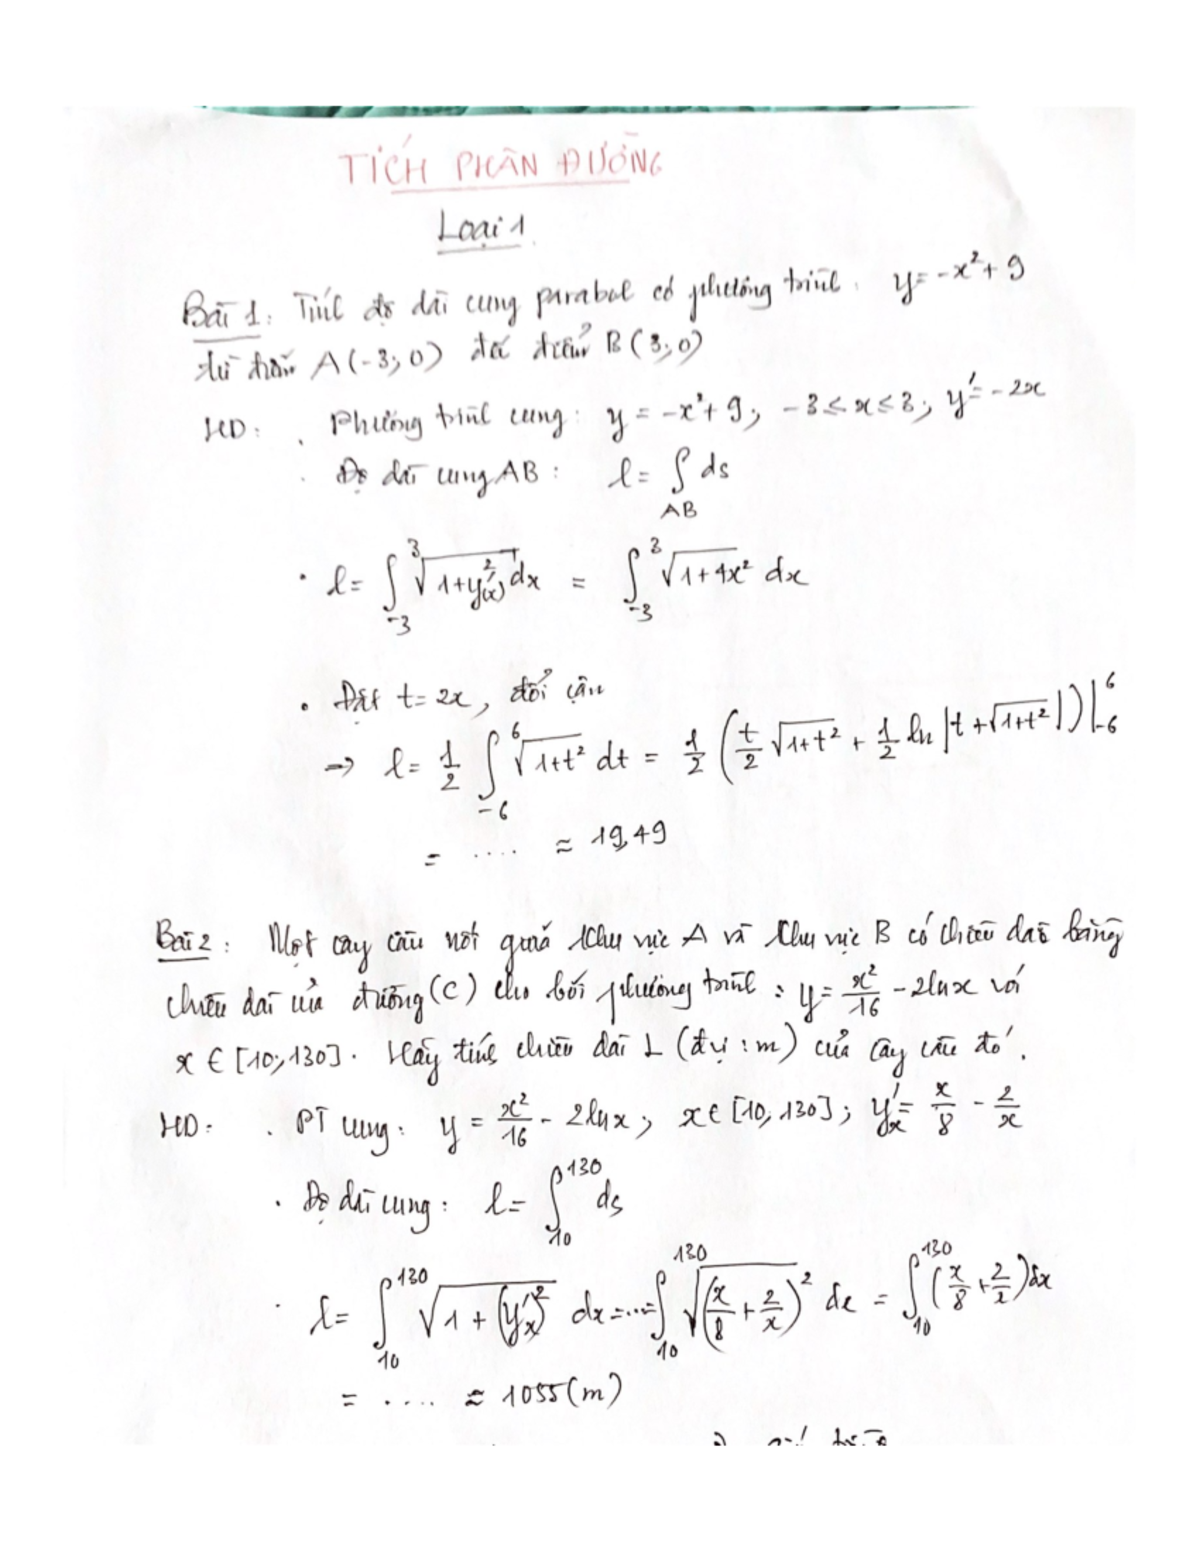 TÍCH PHÂN ĐƯỜNG
Loại 1
Bài 1: Tính độ dài cung parabol có phương trình: y = -x² + 9
từ điểm A(-3; 0) đến điểm B(3; 0)
HD: . Phương trình cung: y = -x² + 9; -3 ≤ x ≤ 3; y' = -2x
. Độ dài cung AB: l = ∫_{AB} ds
. l = ∫_{-3}^{3} √(1+y'²(x)) dx = ∫_{-3}^{3} √(1+4x²) dx
. Đặt t = 2x, đổi cận
→ l = 1/2 ∫_{-6}^{6} √(1+t²) dt = 1/2 (t/2 √(1+t²) + 1/2 ln |t + √(1+t²)|)|_{-6}^{6}
= .... ≈ 19,49
Bài 2: Một cây cầu nối giữa khu vực A và khu vực B có chiều dài bằng
chiều dài của đường (C) cho bởi phương trình: y = x²/16 - 2lnx với
x ∈ [10; 130]. Hãy tính chiều dài L (đvị: m) của cây cầu đó.
HD: . PT cung: y = x²/16 - 2lnx; x ∈ [10; 130]; y'ₓ = x/8 - 2/x
. Độ dài cung: l = ∫_{10}^{130} ds
. l = ∫_{10}^{130} √(1 + (y'ₓ)²) dx = ... = ∫_{10}^{130} √((x/8 + 2/x)²) dx = ∫_{10}^{130} (x/8 + 2/x) dx
= .... ≈ 1055 (m)